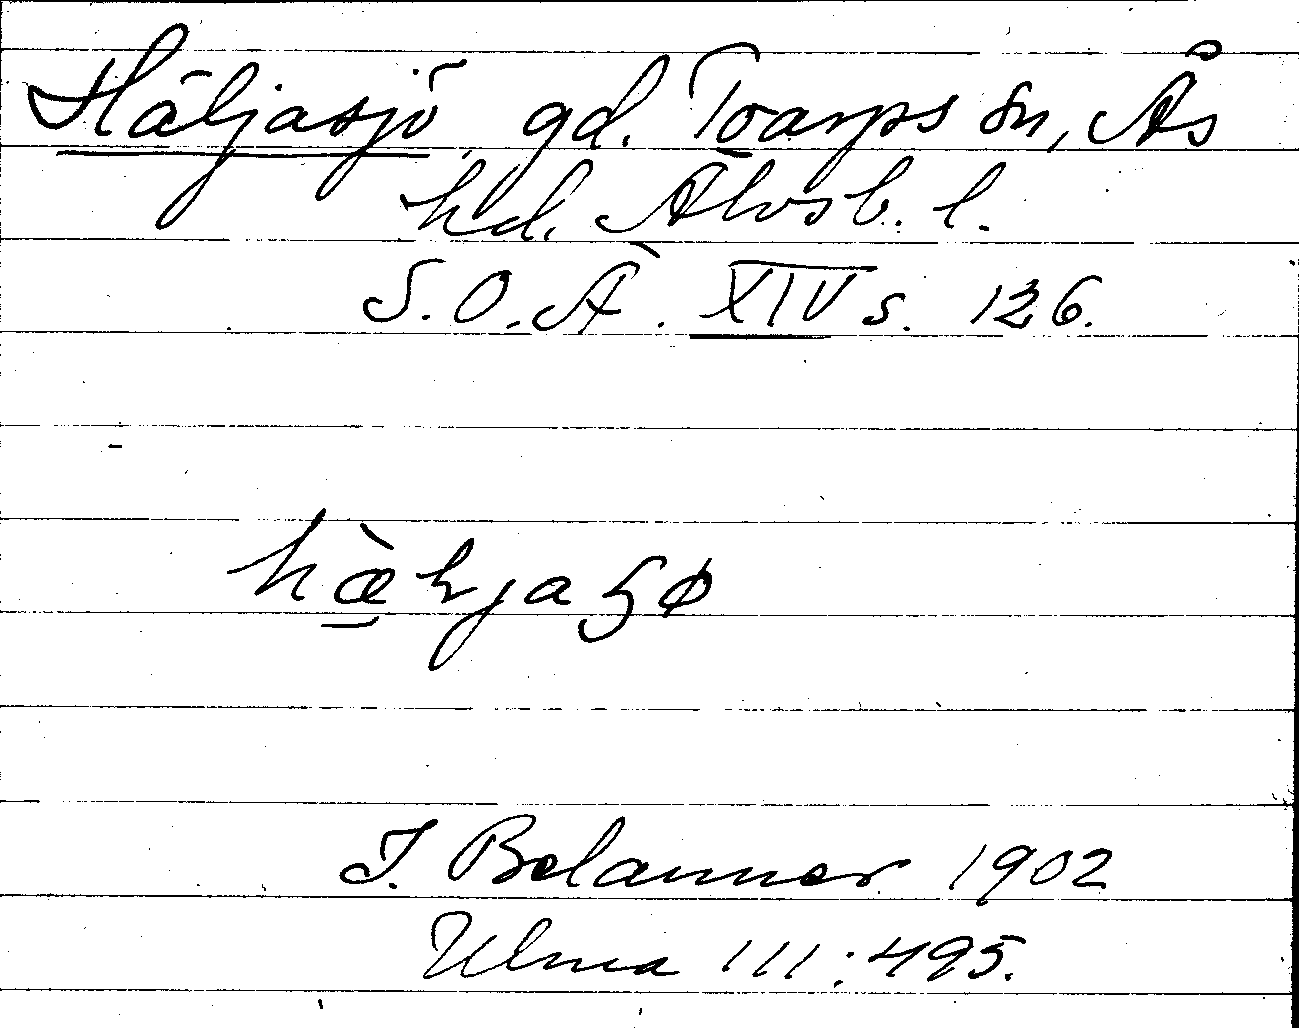 Häljasjö, gd. Toarps sn, Ås
hd. Älvsb. l.
S.O.Ä. XIV s. 126.
hæ̀ljaɧø
J. Belanner 1902
Ulma 111:495.